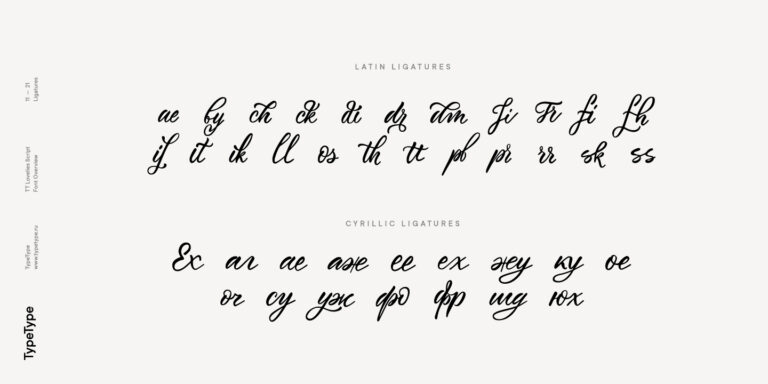 LATIN LIGATURES
ae by ch ck di dr dm Ji Fr fi fh
if it ik ll os th tt pl pr rr sk ss
CYRILLIC LIGATURES
Ех аг ае аже ее ех жу ку ое
ог су уж фо фр шд юх
11 — 21
Ligatures
TT Lovelies Script
Font Overview
TypeType
www.typetype.ru
TypeType